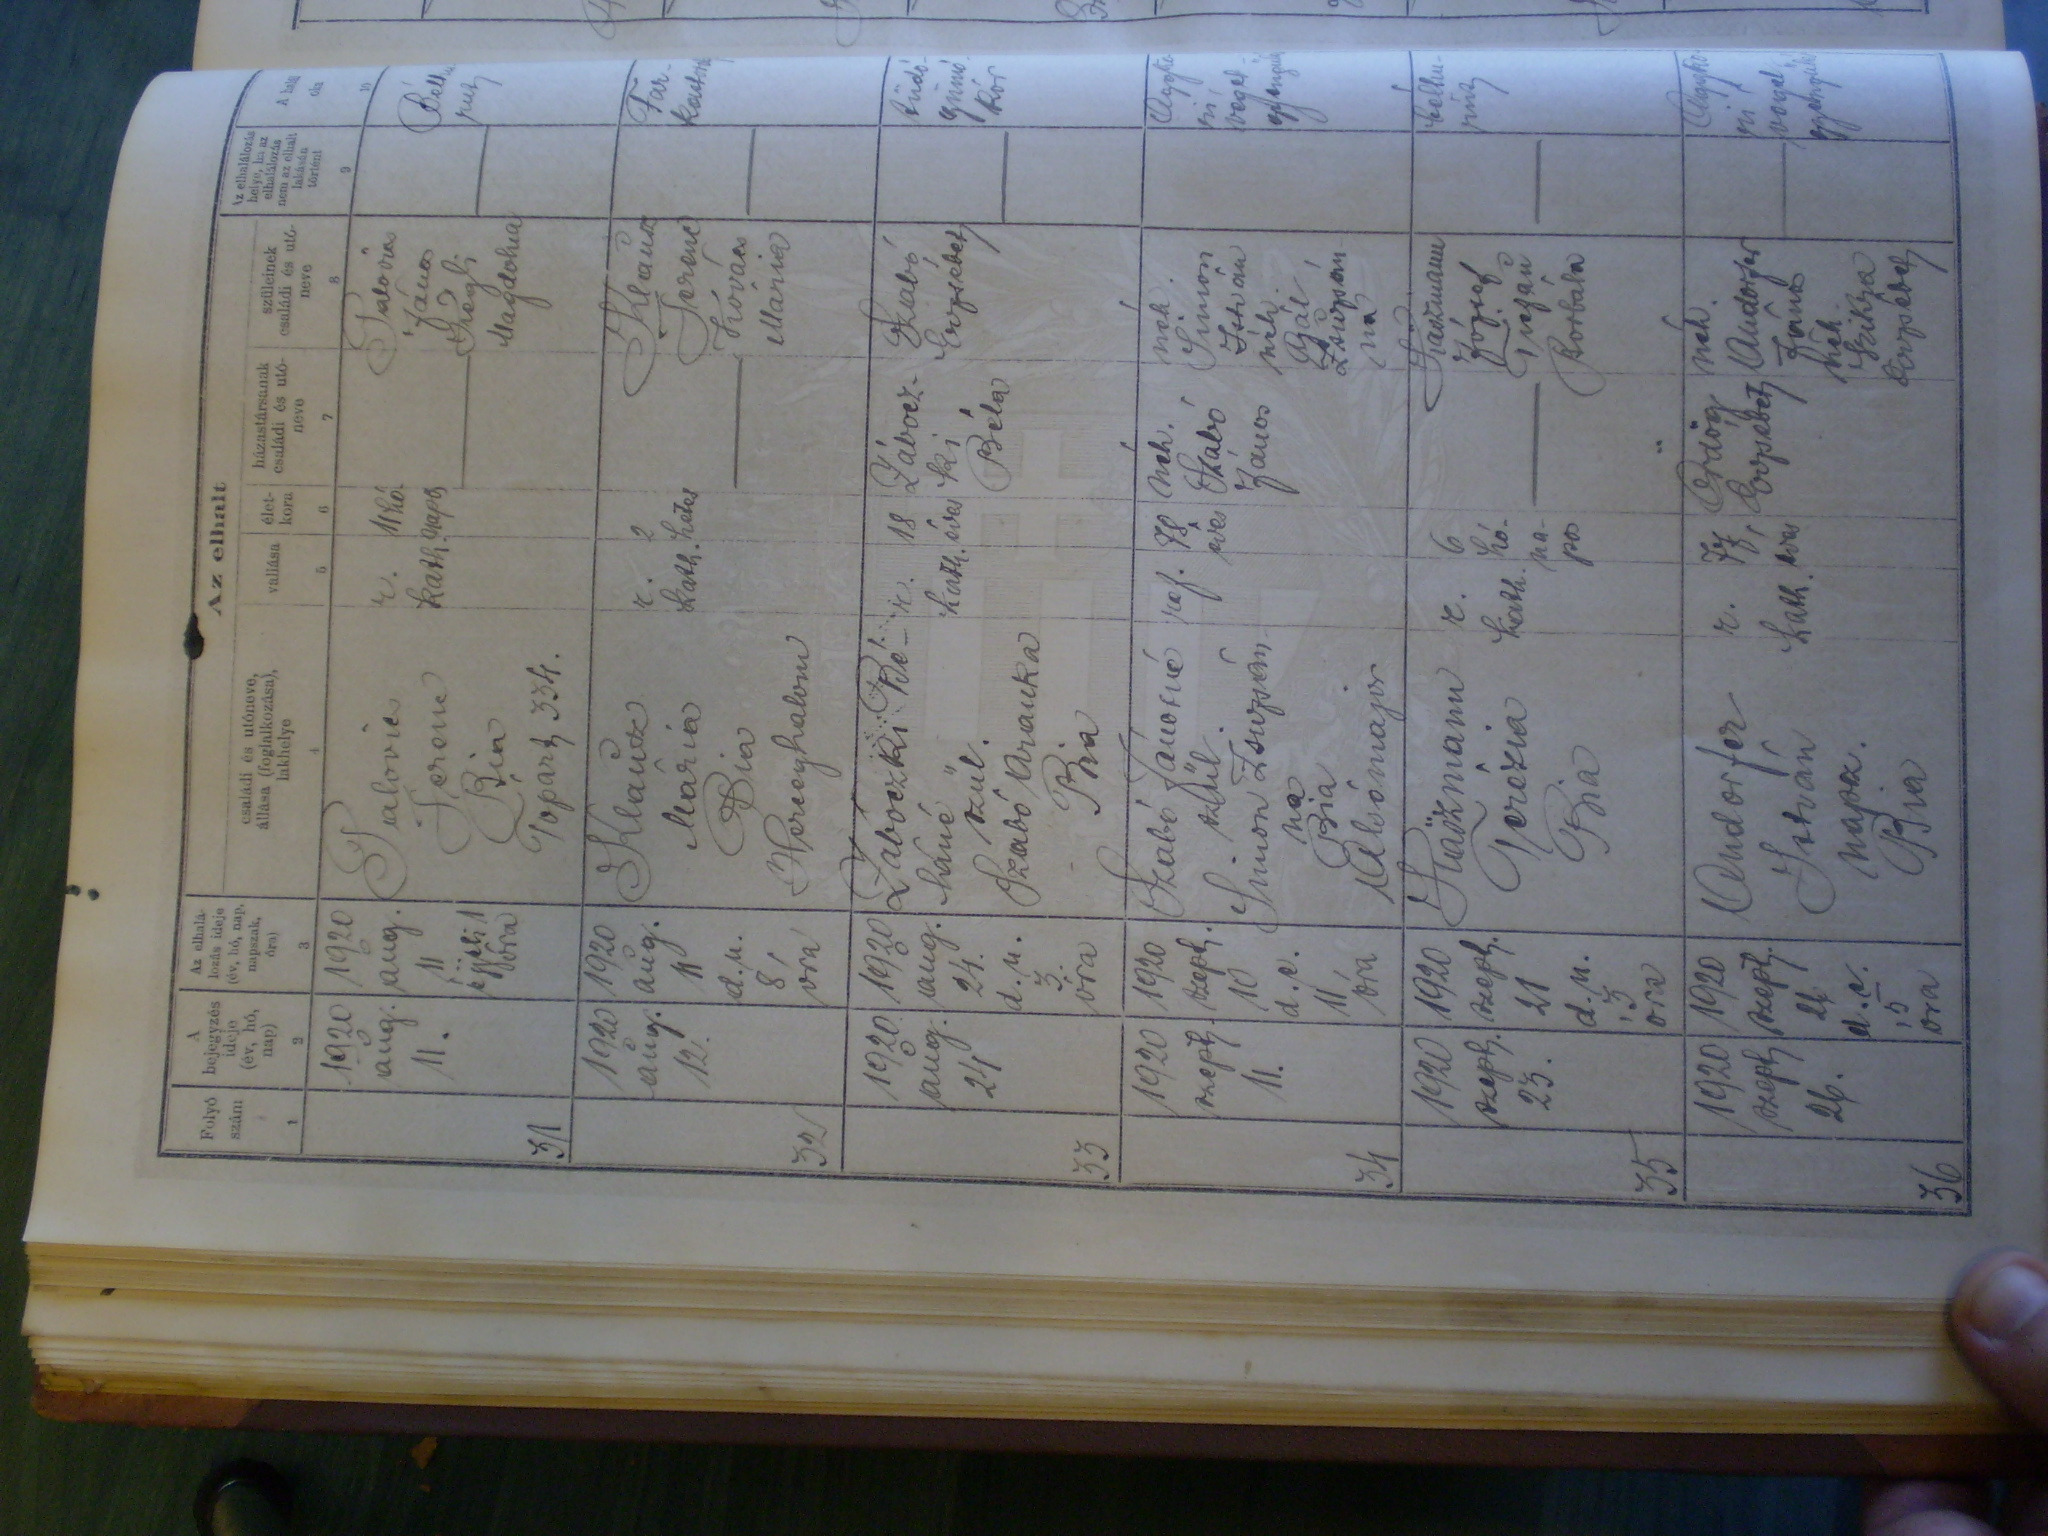 Az elhalt
Folyó
szám
A
bejegyzés
ideje
(év, hó,
nap)
Az elhalá-
lozás ideje
(év, hó, nap,
napszak,
óra)
családi és utóneve,
állása (foglalkozása),
lakhelye
vallása
élet-
kora
házastársának
családi és utó-
neve
szüleinek
családi és utó-
neve
Az elhalálozás
helye, ha az
elhalálozás
nem az elhalt
lakásán
történt
A halál
oka
1
2
3
4
5
6
7
8
9
10
31
1920
aug.
11.
1920
aug.
11
éjjeli 1
óra
Ferenc
Bia
334.
r.
kath.
11 hó
napos
János
Magdolna
32
1920
aug.
12.
1920
aug.
11
d.u.
8
óra
Mária
Bia
Herceghalom
r.
kath.
2
hetes
Ferenc
Kovács
Mária
33
1920
aug.
24
1920
aug.
24.
d.u.
3
óra
Zábóczki Bé-
láné
szül.
Szabó Aranka
Bia
r.
kath.
18
éves
Zábocz-
ki
Béla
Szabó
Erzsébet
tüdő-
gümő-
kór
34
1920
szept.
11.
1920
szept.
10
d.e.
11
óra
Szabó Jánosné
szül.
Simon Zsuzsán-
na
Bia
Alsómajor
ref.
78
éves
néh.
Szabó
János
néh.
Simon
István
néh.
Gál
Zsuzsán
na
35
1920
szept.
23.
1920
szept.
21
d.u.
3
óra
Terézia
Bia
r.
kath.
6
hó-
na-
pos
József
Borbála
36
1920
szept.
26.
1920
szept.
d.e.
5
óra
Andorfer
István
napsz.
Bia
r.
kath.
éves
Erzsébet
néh.
Andorfer
János
néh.
Szikra
Erzsébet